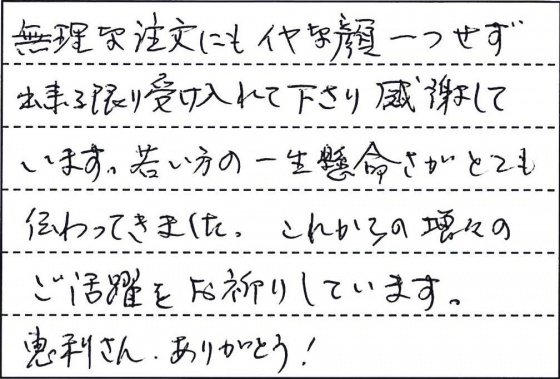 無理な注文にもイヤな顔一つせず
出来る限り受け入れて下さり感謝して
います。若い方の一生懸命さがとても
伝わってきました。これからの増々の
ご活躍をお祈りしています。
恵利さん、ありがとう！